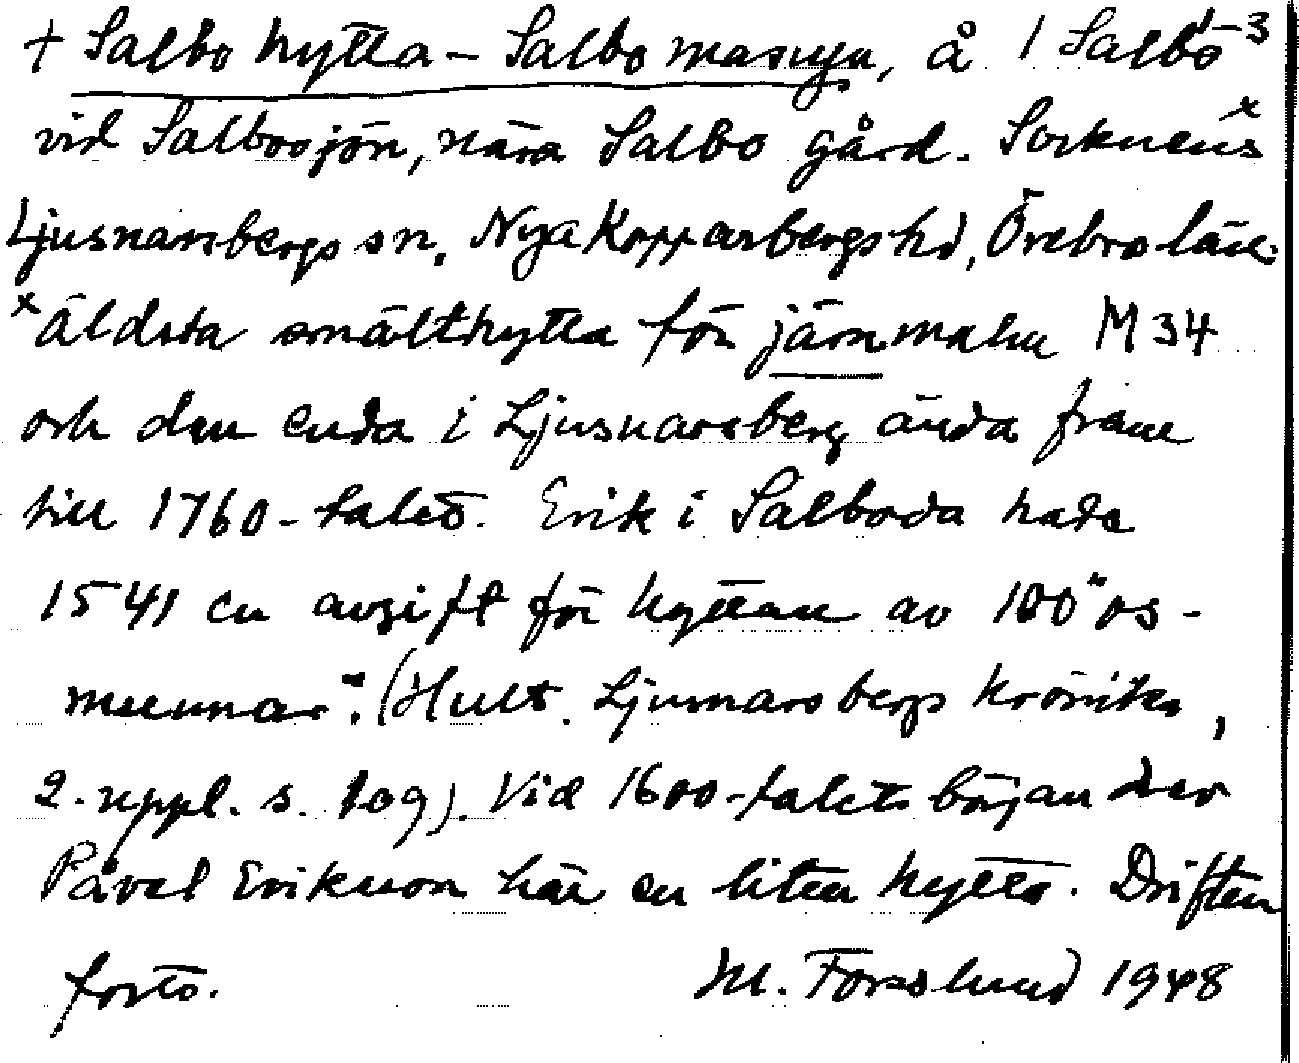 + Salbo hytta – Salbo masugn, å 1 Salbo 3
vid Salbosjön, nära Salbo gård. Socknens x
Ljusnarsbergs sn, Nya Kopparbergs hd, Örebro län.
x äldsta smälthytta för järnmalm M 34
och den enda i Ljusnarsberg ända fram
till 1760-talet. Erik i Salboda hade
1541 en avgift för hyttan av 100 "os-
munnar". (Hult. Ljusnarsbergs krönika,
2. uppl. s. 109). Vid 1600-talets början drev
Påvel Erikson här en liten hytta. Driften
forts. M. Forslund 1948